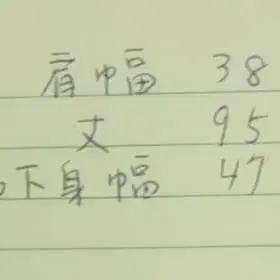 肩巾畐 38
丈 95
下身幅 47